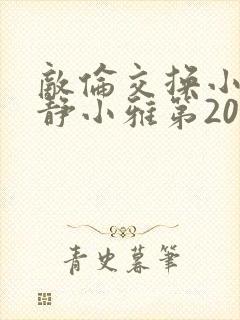 敵倫交換小
静小雅第20
青史暮筆